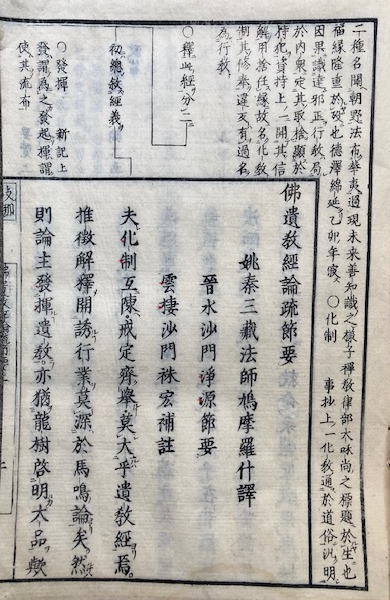 二種名聞朝野法布華夷過現未來善知識之樣子禪教律部大和尚之標題於生也
福緣隆重於歿也德澤綿延乙卯年寂 ○化制 事抄上一化教通於道俗汎明
因果識達邪正行教局
於内衆定其取捨顯於
持犯資持上一開其信
解用捨任緣故名化教
制其修奉違反有過名
爲行教
○釋此經分二
初總敘經義
○發揮 新記上
發謂爲之發起揮謂
使其流布
佛遺教經論疏節要
姚秦三藏法師鳩摩羅什譯
晉水沙門淨源節要
雲棲沙門袾宏補註
夫化制互陳戒定齊舉莫大乎遺教經焉
推徵解釋開誘行業莫深於馬鳴論矣然
則論主發揮遺教亦猶龍樹啓明大品歟
支那